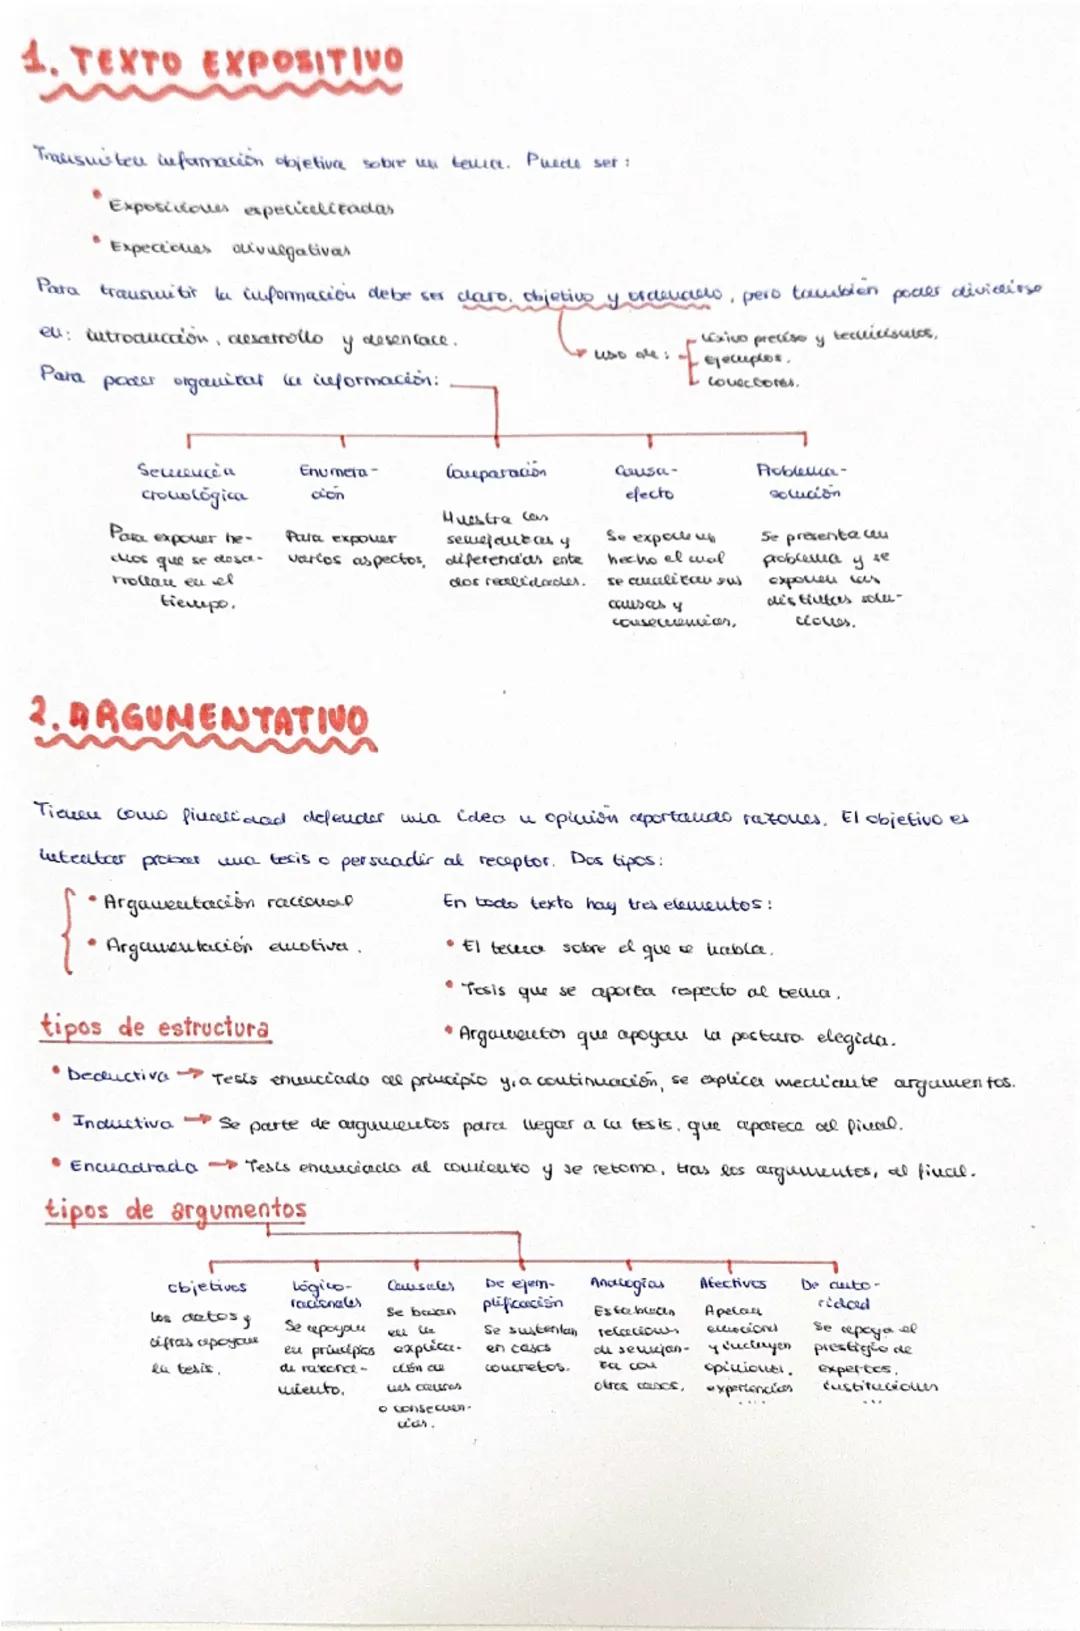 1. TEXTO EXPOSITIVO
Transmiten información objetiva sobre un tema. Puede ser:
• Exposiciones especializadas
• Expeciones divulgativas
Para transmitir la información debe ser claro, objetivo y ordenado, pero también poder dividirse
en: introducción, desarrollo y desenlace.
uso de:
Léxico preciso y tecnicismos.
ejemplos.
conectores.
Para poder organizar la información:
Secuencia cronológica
Para exponer he-
chos que se desa-
rrollan en el
tiempo.
Enumera-
ción
Para exponer
varios aspectos.
Comparación
Muestra las
semejanzas y
diferencias ente
dos realidades.
Causa-
efecto
Se expone un
hecho el cual
se analizan sus
causas y
consecuencias.
Problema-
solución
Se presenta un
problema y se
exponen las
distintas solu-
ciones.
2. ARGUMENTATIVO
Tienen como finalidad defender una idea u opinión aportando razones. El objetivo es
intentar probar una tesis o persuadir al receptor. Dos tipos:
• Argumentación racional
• Argumentación emotiva.
En todo texto hay tres elementos:
• El tema sobre el que se habla.
• Tesis que se aporta respecto al tema.
• Argumentos que apoyan la postura elegida.
tipos de estructura
• Deductiva → Tesis enunciada al principio y, a continuación, se explica mediante argumentos.
• Inductiva → Se parte de argumentos para llegar a la tesis, que aparece al final.
• Encuadrada → Tesis enunciada al comienzo y se retoma, tras los argumentos, al final.
tipos de argumentos
objetivos
los datos y
cifras apoyan
la tesis.
Lógico-
racionales
Se apoyan
en principios
de razona-
miento.
Causales
Se basan
en la
explica-
ción de
las causas
o consecuen-
cias.
De ejem-
plificación
Se sustentan
en casos
concretos.
Analogías
Establecen
relaciones
de semejan-
za con
otros casos.
Afectivos
Apelan
emociones
y incluyen
opiniones.
experiencias
....
De auto-
ridad
Se apoya el
prestigio de
expertos.
instituciones
...